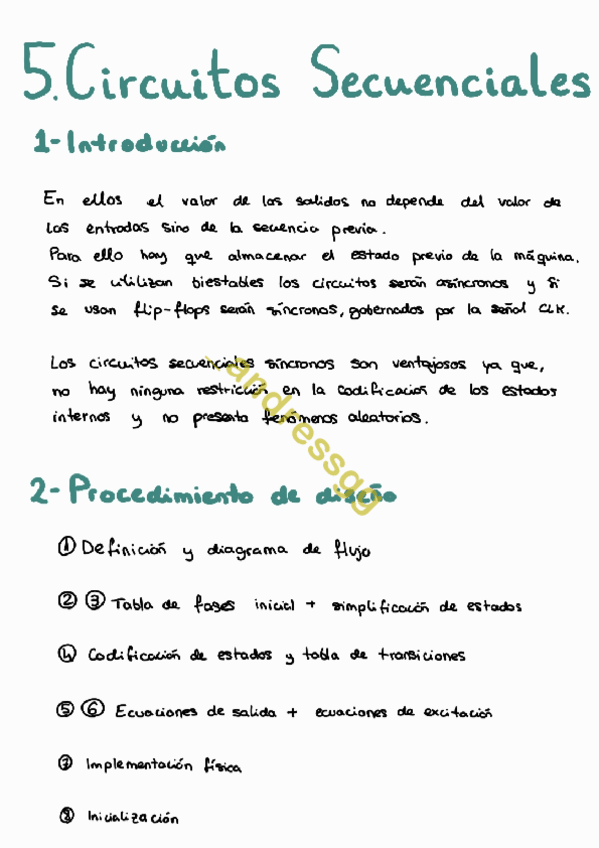 5. Circuitos Secuenciales
1- Introducción
En ellos el valor de las salidas no depende del valor de
las entradas sino de la secuencia previa.
Para ello hay que almacenar el estado previo de la máquina.
Si se utilizan biestables los circuitos serán asíncronos y si
se usan flip-flops serán síncronos, gobernados por la señal CLK.
Los circuitos secuenciales síncronos son ventajosos ya que,
no hay ninguna restricción en la codificación de los estados
internos y no presenta fenómenos aleatorios.
andressgg
2- Procedimiento de diseño
① Definición y diagrama de flujo
② ③ Tabla de fases inicial + simplificación de estados
④ Codificación de estados y tabla de transiciones
⑤ ⑥ Ecuaciones de salida + ecuaciones de excitación
⑦ Implementación física
⑧ Inicialización